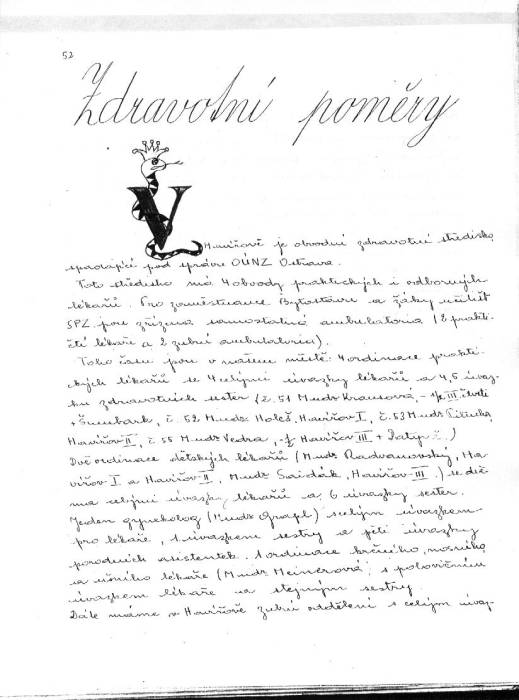 52
Zdravotní poměry
V Havířově je obvodní zdravotní středisko,
spadající pod správu OÚNZ Ostrava.
Toto středisko má 4 obvody praktických i odborných
lékařů. Pro zaměstnance Bytostavu a žáky učilišť
SPZ jsou zřízena samostatná ambulatoria (2 prakti-
čtí lékaři a 2 zubní ambulatoria).
Toho času jsou v našem městě: 4 ordinace prakti-
ckých lékařů se 4 celými úvazky lékařů a 4,5 úvaz-
ku zdravotních sester (č. 51 Mudr Krausová, III
+ Šumbark, č. 52 Mudr Holeš, Havířov I, č. 53 Mudr
Havířov II, č. 55 Mudr Vedra, Havířov III +
Dvě ordinace dětských lékařů (Mudr Radvanovský, Ha-
vířov I a Havířov II, Mudr Havířov III) se dvě-
ma celými úvazky lékařů a 6 úvazky sester.
Jeden gynekolog (Mudr Grapl) s celým úvazkem
pro lékaře, 1 úvazkem sestry a pěti úvazky
porodních asistentek. 1 ordinace krčního, nosního
a ušního lékaře (Mudr Meinerová) s polovičním
úvazkem lékaře a stejným sestry.
Dále máme v Havířově zubní oddělení s celým úvaz-